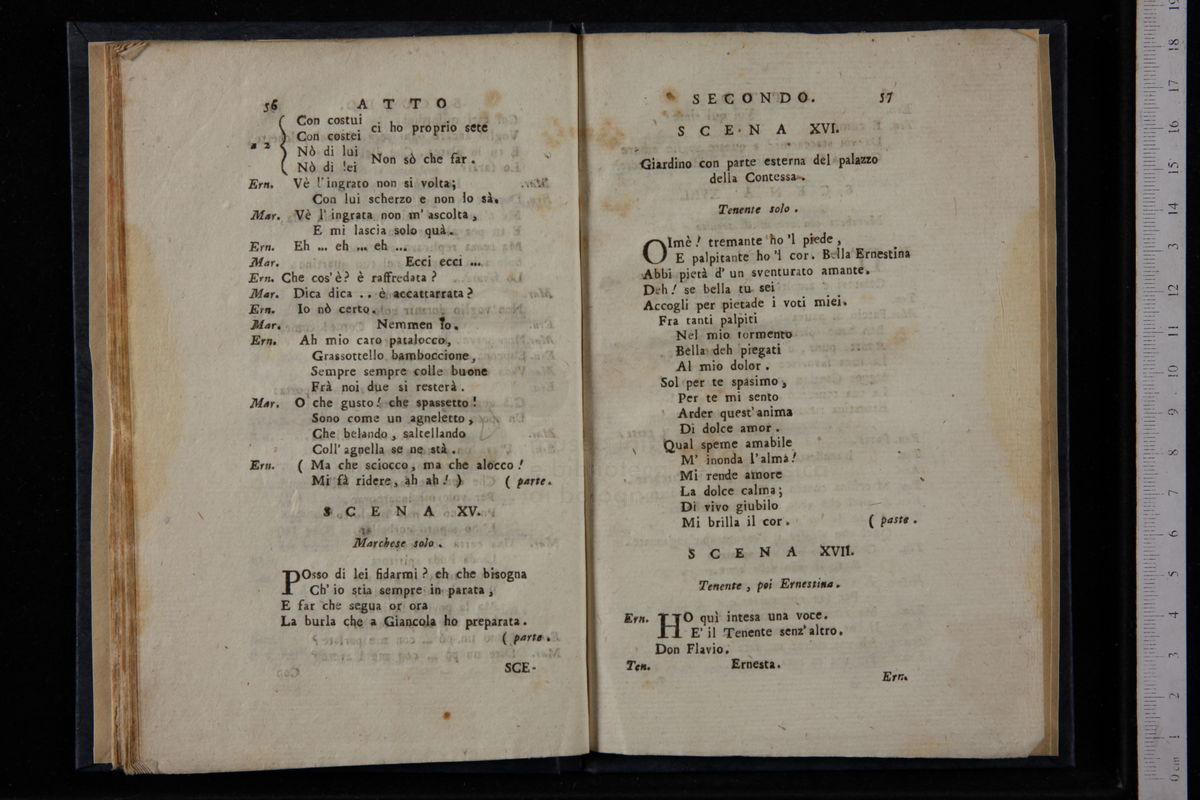 56 ATTO
a 2
Con costui
Con costei ci ho proprio sete
Nò di lui
Nò di lei Non sò che far.
Ern. Vè l'ingrato non si volta;
Con lui scherzo e non lo sà.
Mar. Vè l'ingrata non m'ascolta,
E mi lascia solo quà.
Ern. Eh ... eh ... eh ...
Mar. Ecci ecci ...
Ern. Che cos'è? è raffredata?
Mar. Dica dica .. è accattarrata?
Ern. Io nò certo.
Mar. Nemmen Io.
Ern. Ah mio caro patalocco,
Grassottello bamboccione,
Sempre sempre colle buone
Frà noi due si resterà.
Mar. O che gusto! che spassetto!
Sono come un agneletto,
Che belando, saltellando
Coll'agnella se ne stà.
Ern. ( Ma che sciocco, ma che alocco!
Mi fà ridere, ah ah! ) ( parte.
SCENA XV.
Marchese solo.
POsso di lei fidarmi? eh che bisogna
Ch'io stia sempre in parata,
E far che segua or ora
La burla che a Giancola ho preparata.
( parte.
SCE-
SECONDO. 57
SCENA XVI.
Giardino con parte esterna del palazzo
della Contessa.
Tenente solo.
OImè! tremante ho 'l piede,
E palpitante ho 'l cor. Bella Ernestina
Abbi pietà d'un sventurato amante.
Deh! se bella tu sei
Accogli per pietade i voti miei.
Fra tanti palpiti
Nel mio tormento
Bella deh piegati
Al mio dolor.
Sol per te spasimo,
Per te mi sento
Arder quest'anima
Di dolce amor.
Qual speme amabile
M'inonda l'alma!
Mi rende amore
La dolce calma;
Di vivo giubilo
Mi brilla il cor. ( paste.
SCENA XVII.
Tenente, poi Ernestina.
Ern. HO quì intesa una voce.
E' il Tenente senz'altro.
Don Flavio.
Ten. Ernesta.
Ern.
0 cm 1 2 3 4 5 6 7 8 9 10 11 12 13 14 15 16 17 18 19